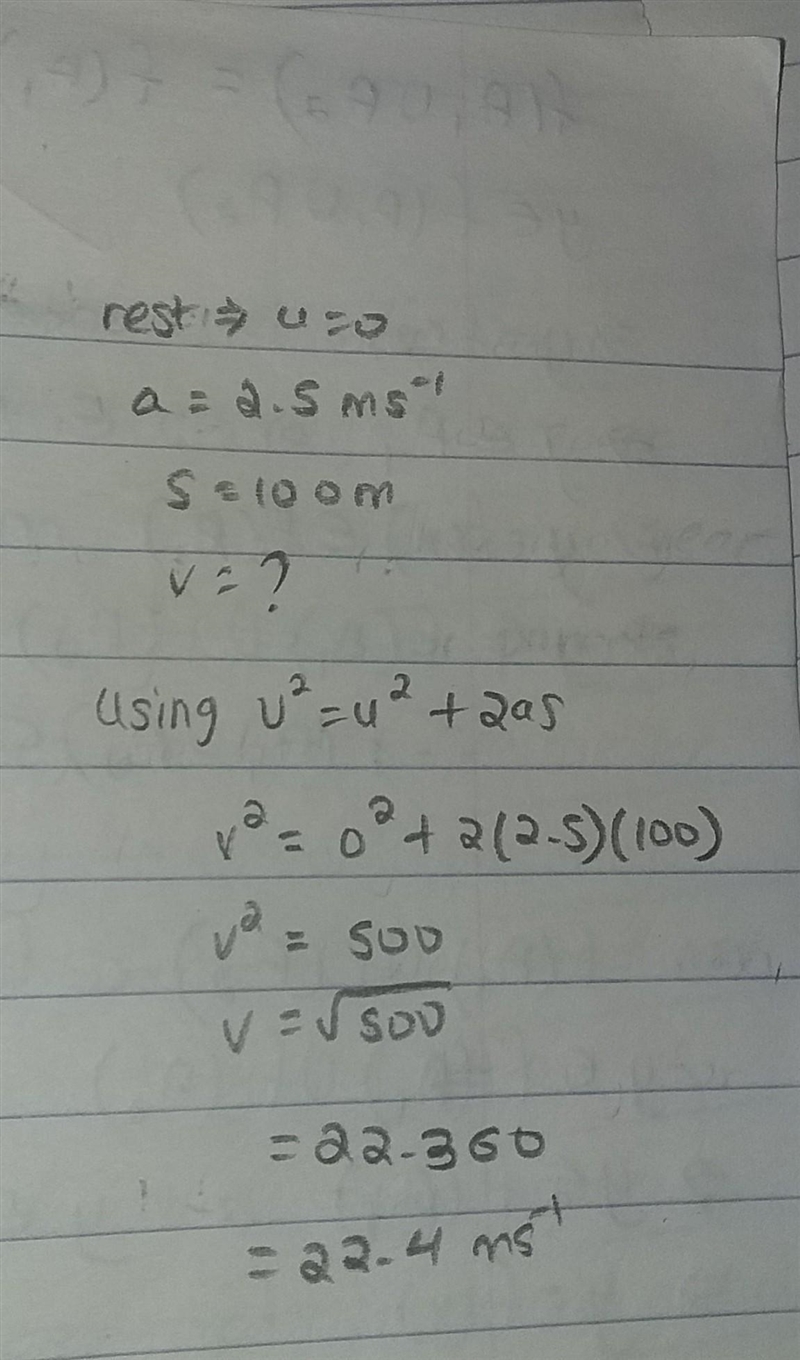 rest ⇒ u=0
a = 2.5 ms⁻¹
s = 100m
v = ?
Using v²=u²+2as
v² = 0²+ 2(2.5)(100)
v² = 500
v = √500
= 22.360
= 22.4 ms⁻¹